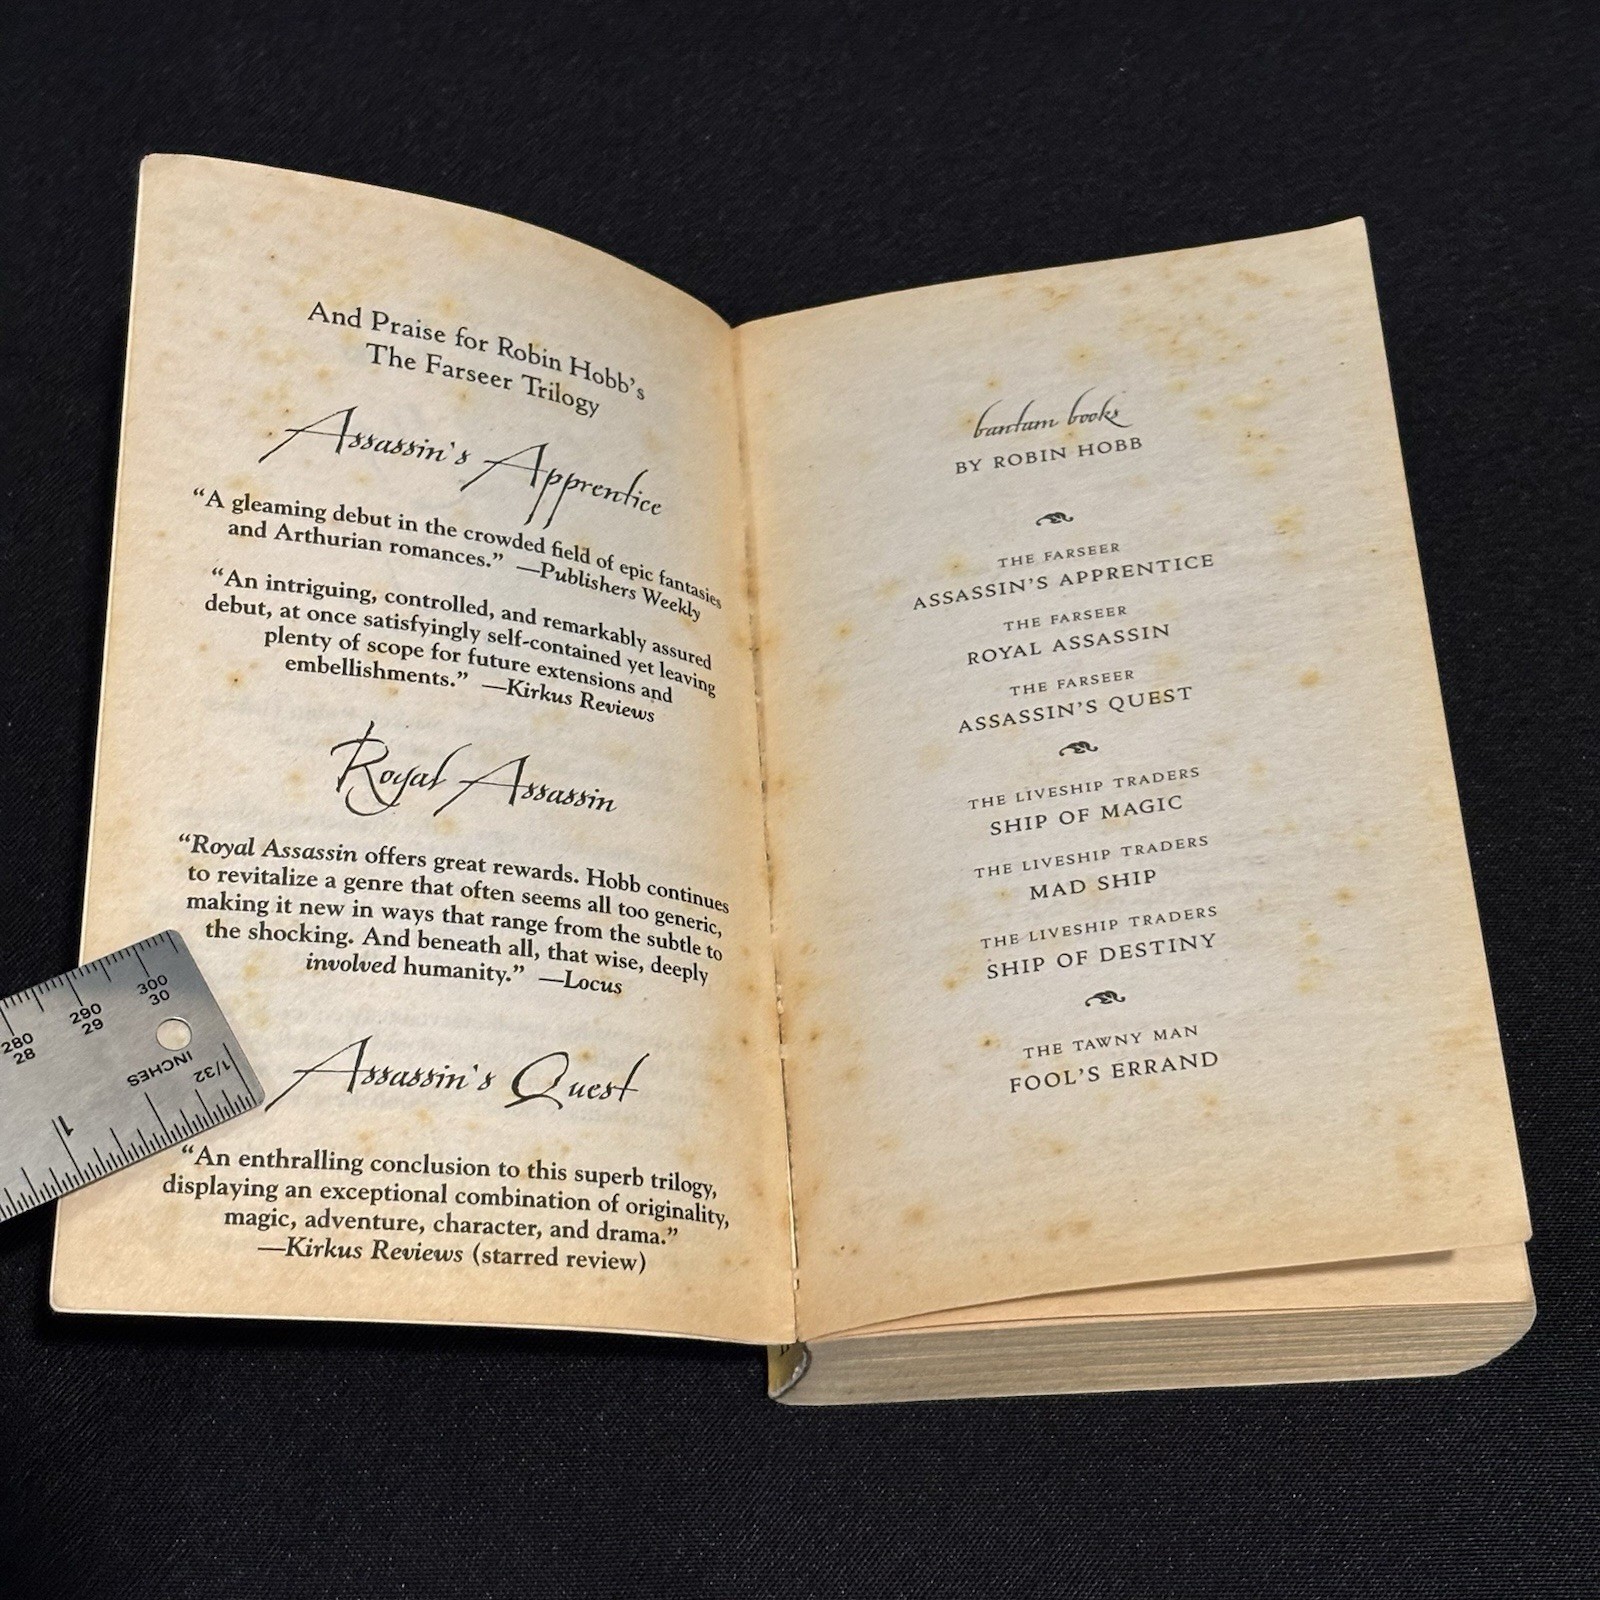 And Praise for Robin Hobb's
The Farseer Trilogy
Assassin's Apprentice
“A gleaming debut in the crowded field of epic fantasies
and Arthurian romances.” —Publishers Weekly
“An intriguing, controlled, and remarkably assured
debut, at once satisfyingly self-contained yet leaving
plenty of scope for future extensions and
embellishments.” —Kirkus Reviews
Royal Assassin
“Royal Assassin offers great rewards. Hobb continues
to revitalize a genre that often seems all too generic,
making it new in ways that range from the subtle to
the shocking. And beneath all, that wise, deeply
involved humanity.” —Locus
Assassin's Quest
“An enthralling conclusion to this superb trilogy,
displaying an exceptional combination of originality,
magic, adventure, character, and drama.”
—Kirkus Reviews (starred review)
bantam books
BY ROBIN HOBB
THE FARSEER
ASSASSIN'S APPRENTICE
THE FARSEER
ROYAL ASSASSIN
THE FARSEER
ASSASSIN'S QUEST
THE LIVESHIP TRADERS
SHIP OF MAGIC
THE LIVESHIP TRADERS
MAD SHIP
THE LIVESHIP TRADERS
SHIP OF DESTINY
THE TAWNY MAN
FOOL'S ERRAND
280 290 300
28 29 30
INCHES
1/32
1